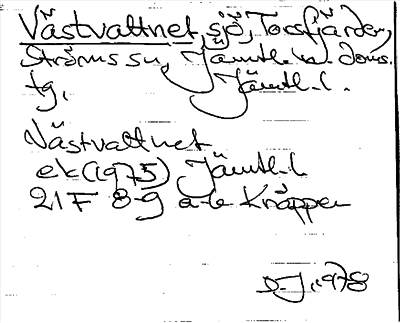 Västvattnet, sjö, Torsfjärden,
Ströms sn, Jämtl. n. doms.
tg. Jämtl. l.
Västvattnet
ek (1975) Jämtl. l
21 F 8-9 a-b Knäppen
D.J. 1978